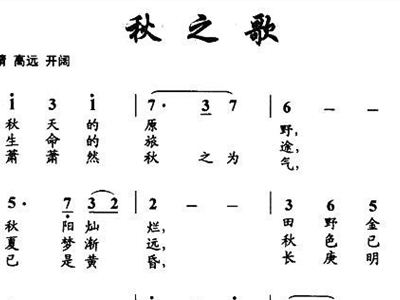 秋之歌
情 高远 开阔
1 3 1 7· 3 7 6 – –
秋 天 的 原 野,
生 命 的 旅 途,
萧 萧 然 秋 之 为 气,
5· 7 3 2 2 – – 3 6 5
秋 阳 灿 烂, 田 野 金
夏 梦 渐 远, 秋 色 已
已 是 黄 昏, 长 庚 明